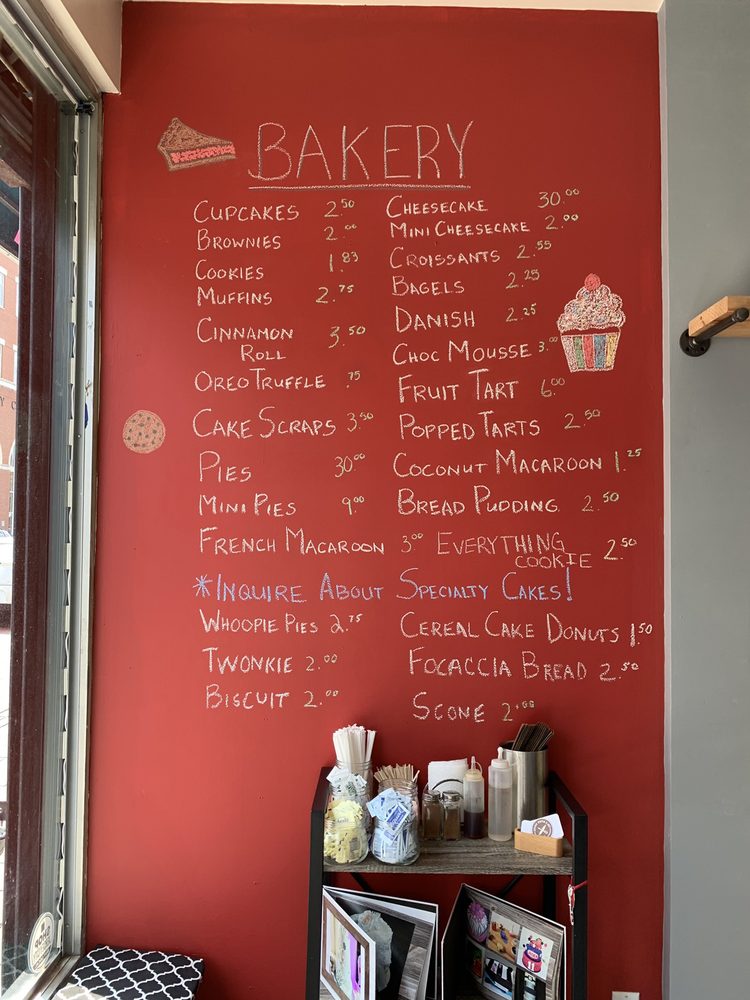 BAKERY
CUPCAKES 2.50
BROWNIES 2.00
COOKIES 1.83
MUFFINS 2.75
CINNAMON
ROLL 3.50
OREO TRUFFLE .75
CAKE SCRAPS 3.50
PIES 30.00
MINI PIES 9.00
FRENCH MACAROON 3.00
CHEESECAKE 30.00
MINI CHEESECAKE 2.00
CROISSANTS 2.55
BAGELS 2.25
DANISH 2.25
CHOC MOUSSE 3.00
FRUIT TART 6.00
POPPED TARTS 2.50
COCONUT MACAROON 1.25
BREAD PUDDING 2.50
EVERYTHING
COOKIE 2.50
*INQUIRE ABOUT SPECIALTY CAKES!
WHOOPIE PIES 2.75
TWONKIE 2.00
BISCUIT 2.00
CEREAL CAKE DONUTS 1.50
FOCACCIA BREAD 2.50
SCONE 2.00